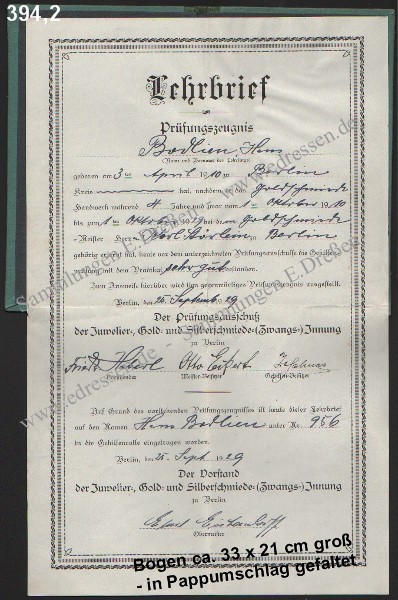 394,2
Lehrbrief
Prüfungszeugnis
Bodlien, Hans
(Name und Vorname des Lehrlings)
geboren am 3ten April 1910 zu Berlin
Kreis hat, nachdem er das Goldschmiede
Handwerk während 4 Jahre und zwar vom 1ten Oktober 19
bis zum 1ten Oktober 1929 bei dem Goldschmiede
-Meister Herrn in Berlin
prüfung mit dem Prädikat sehr gut bestanden.
Zum Ausweise hierüber wird ihm gegenwärtiges Prüfungszeugnis ausgestellt.
Berlin, den 25. September 1929
Der Prüfungsausschuß
der Juwelier-, Gold- und Silberschmiede-(Zwangs-) Innung
zu Berlin
Otto
Vorsitzender Meister-Beisitzer Gesellen-Beisitzer
Auf Grund des vorstehenden Prüfungszeugnisses ist heute dieser Lehrbrief
auf den Namen Hans Bodlien unter Nr. 956
in die Gehilfenrolle eingetragen worden.
Berlin, den 25. Sept. 1929
Der Vorstand
der Juwelier-, Gold- und Silberschmiede-(Zwangs-) Innung
zu Berlin
Obermeister
Sammlungen E.Dreßen
www.edressen.de
Bogen ca. 33 x 21 cm groß
- in Pappumschlag gefaltet